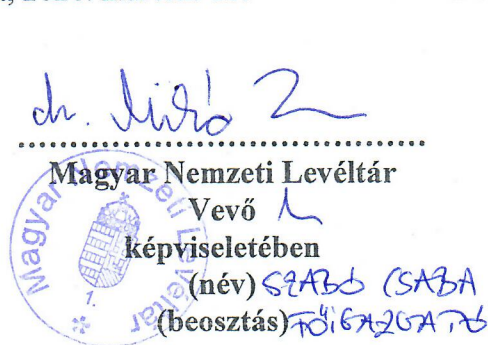 dr. Mikó Z
Magyar Nemzeti Levéltár
Vevő
képviseletében
(név) SZABÓ CSABA
(beosztás) FŐIGAZGATÓ
Magyar Nemzeti Levéltár
1.